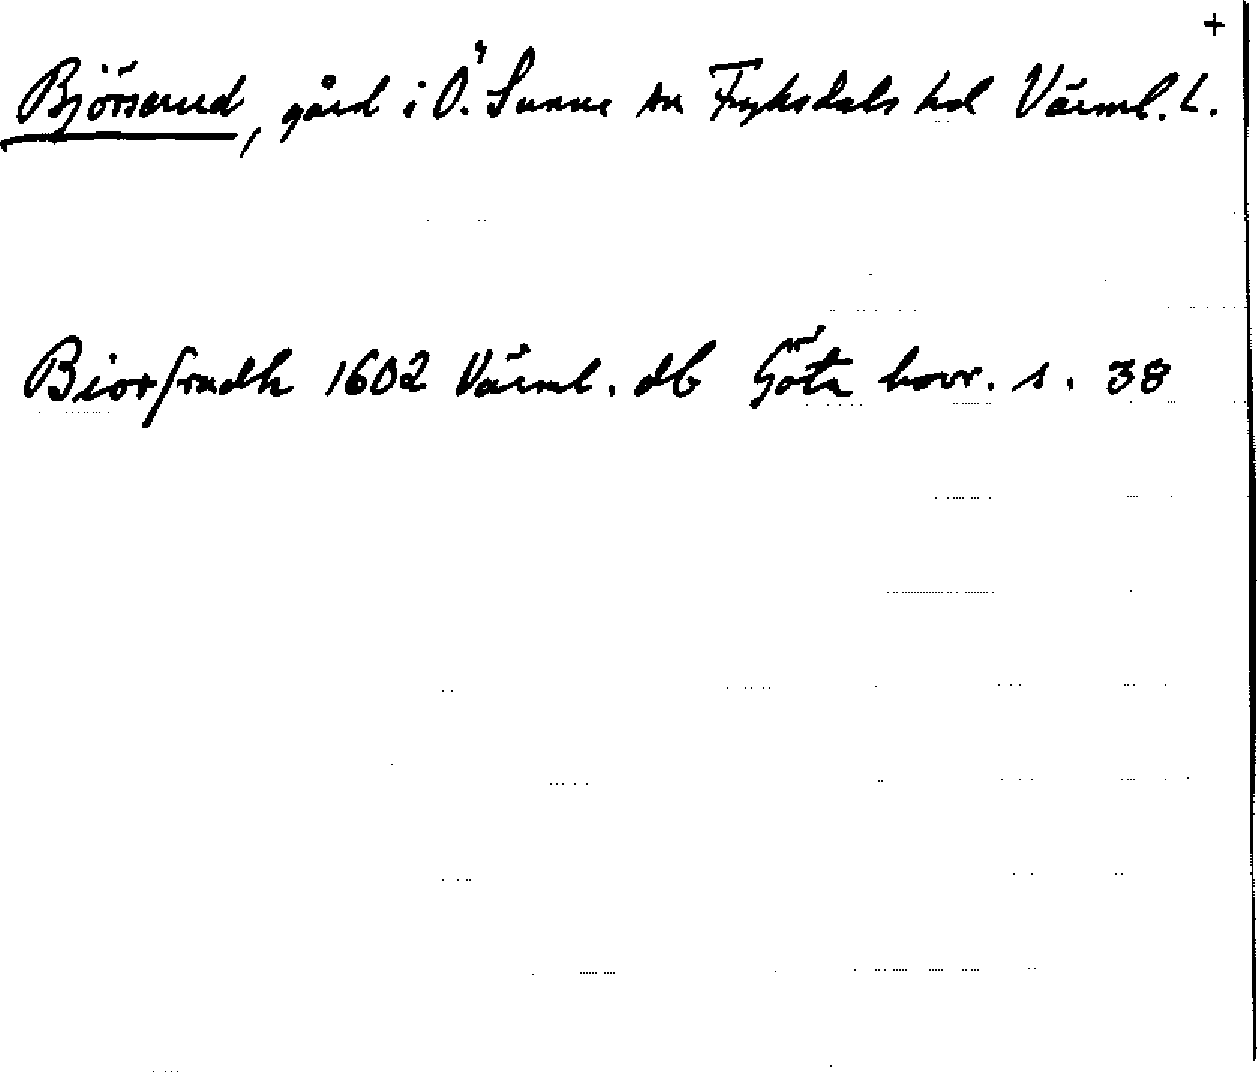 +
Björserud, gård i Ö. Sunne sn Fryksdals hd Värml. L.
Biorsrudh 1602 Värml. db Göta hovr. s. 38